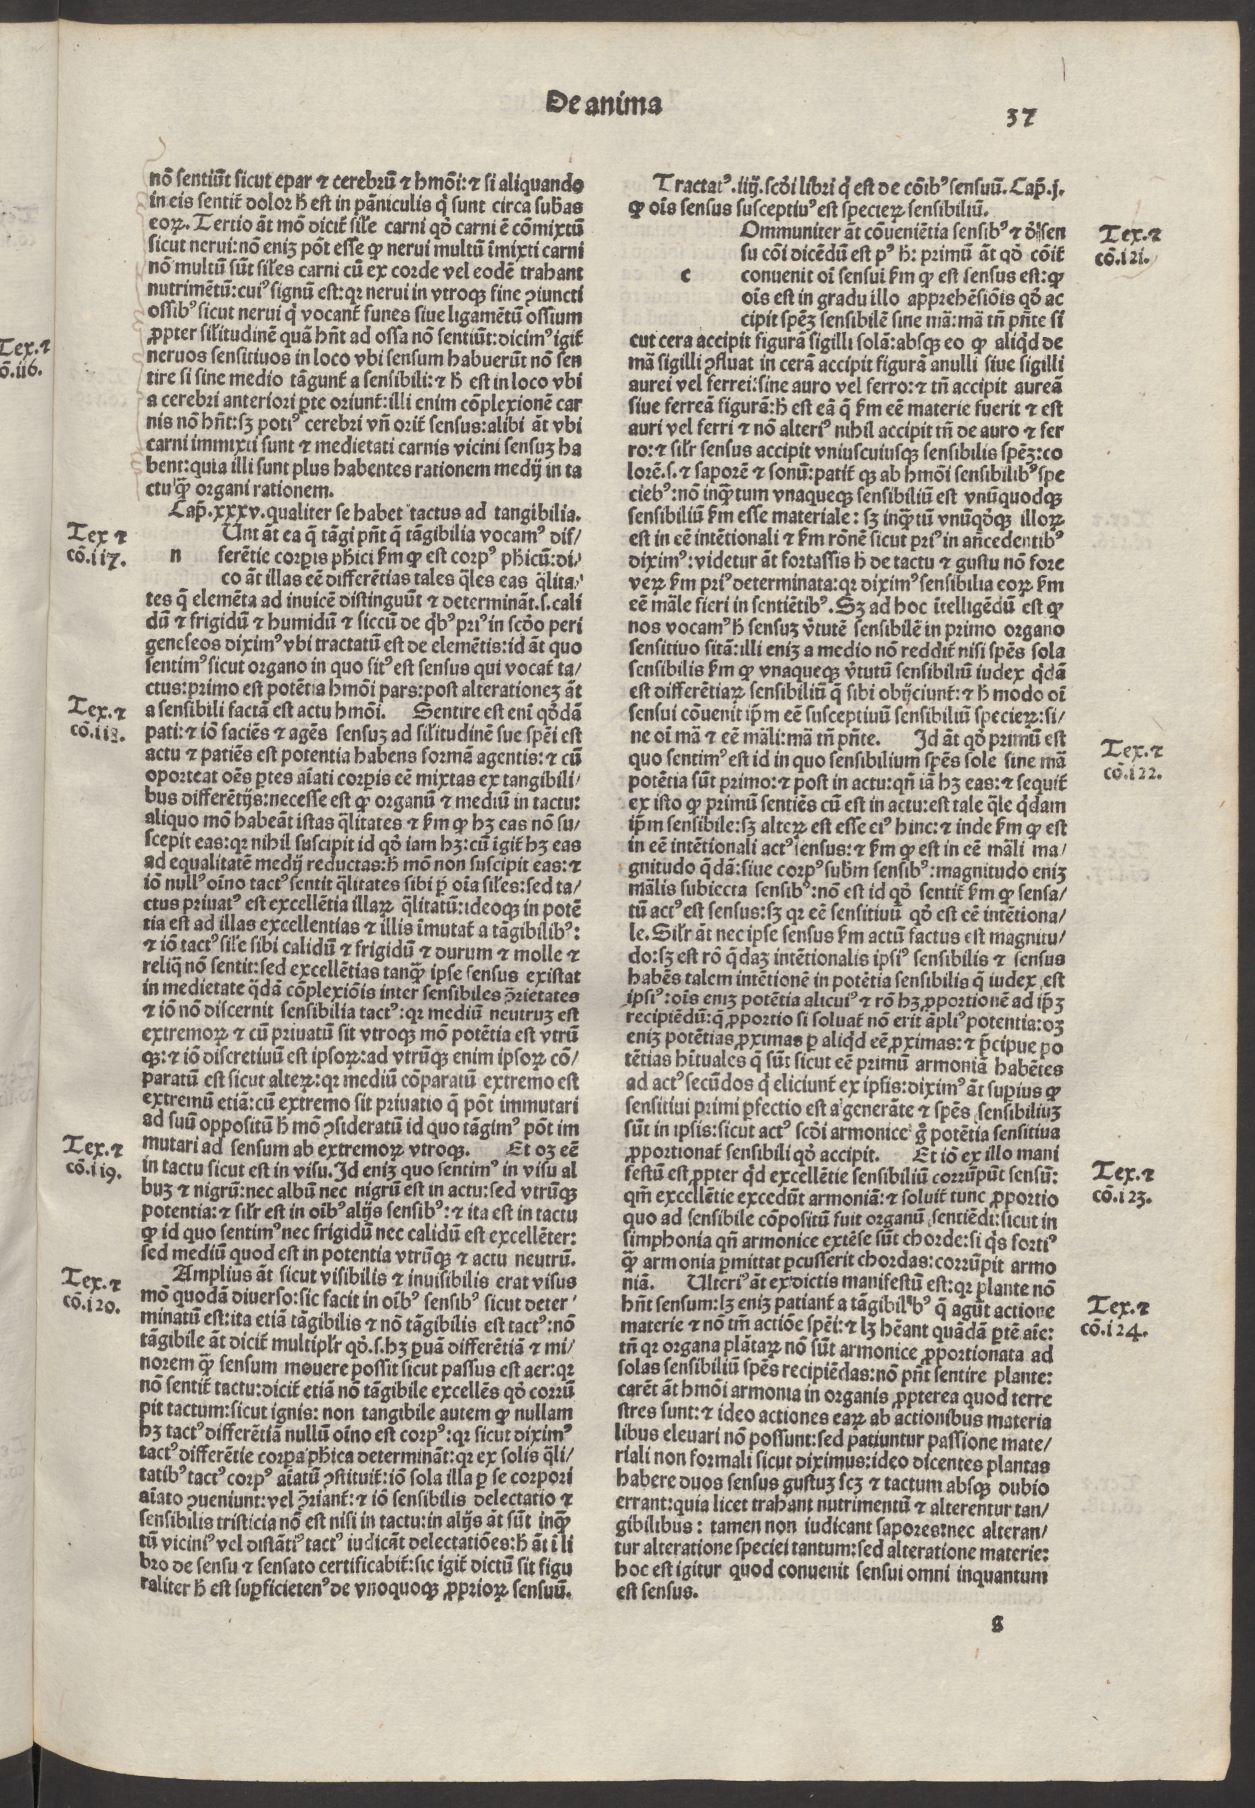 De anima
37
nō sentiūt sicut epar ⁊ cerebrū ⁊ hmōi: ⁊ si aliquando
in eis sentit̄ dolor h̄ est in pāniculis q̄ sunt circa subās
eoꝝ. Tertio āt mō dicit̄ sil̄e carni qd̄ carni ē cōmixtū
sicut nerui: nō eniꝫ pōt esse ꝙ nerui multū īmixti carni
nō multū sūt sil̄es carni cū ex corde vel eodē trahant
nutrimētū: cuiꝰ signū est: qꝛ nerui in vtroqꝫ fine ꝯiuncti
ossibꝰ sicut nerui q̄ vocant̄ funes siue ligamētū ossium
ꝓpter sil̄itudinē quā hn̄t ad ossa nō sentiūt: dicimꝰ igit̄
neruos sensitiuos in loco vbi sensum habuerūt nō sen
tire si sine medio tāgunt̄ a sensibili: ⁊ h̄ est in loco vbi
a cerebri anteriori ꝑte oriunt̄: illi enim cōplexionē car
nis nō hn̄t: sꝫ potiꝰ cerebri vn̄ orit̄ sensus: alibi āt vbi
carni immixti sunt ⁊ medietati carnis vicini sensuꝫ ha
bent: quia illi sunt plus habentes rationem medij in ta
ctu qͣꝫ organi rationem.
Cap̄. xxxv. qualiter se habet tactus ad tangibilia.
Tex ⁊
cō. 117.
n
Unt āt ea q̄ tāgi pn̄t q̄ tāgibilia vocamꝰ dif/
ferētie corpis phici ẜm ꝙ est corpꝰ phicū: di/
co āt illas eē differētias tales q̄les eas q̄lita/
tes q̄ elemēta ad inuicē distinguūt ⁊ determināt. s. cali
dū ⁊ frigidū ⁊ humidū ⁊ siccū de q̄bꝰ priꝰ in scd̄o peri
geneseos diximꝰ vbi tractatū est de elemētis: id āt quo
sentimꝰ sicut organo in quo sitꝰ est sensus qui vocat̄ ta/
ctus: primo est potētia hmōi pars: post alterationeꝫ āt
Tex. ⁊
cō. 118.
a sensibili factā est actu hmōi. Sentire est eni qd̄dā
pati: ⁊ iō faciēs ⁊ agēs sensuꝫ ad sil̄itudinē sue spēi est
actu ⁊ patiēs est potentia habens formā agentis: ⁊ cū
oporteat oēs ꝑtes aīati corpis eē mixtas ex tangibili/
bus differētijs: necesse est ꝙ organū ⁊ mediū in tactu:
aliquo mō habeāt istas q̄litates ⁊ ẜm ꝙ hꝫ eas nō su/
scepit eas: qꝛ nihil suscipit id qd̄ iam hꝫ: cū igit̄ hꝫ eas
ad equalitatē medij reductas: h̄ mō non suscipit eas: ⁊
iō nullꝰ oīno tactꝰ sentit q̄litates sibi ꝑ oīa sil̄es: sed ta/
ctus priuatꝰ est excellētia illaꝝ q̄litatū: ideoqꝫ in potē
tia est ad illas excellentias ⁊ illis īmutat̄ a tāgibilibꝰ:
⁊ iō tactꝰ sil̄e sibi calidū ⁊ frigidū ⁊ durum ⁊ molle ⁊
reliq̄ nō sentit: sed excellētias tanqͣꝫ ipse sensus existat
in medietate q̄dā cōplexiōis inter sensibiles ꝯrietates
⁊ iō nō discernit sensibilia tactꝰ: qꝛ mediū neutruꝫ est
extremoꝝ ⁊ cū priuatū sit vtroqꝫ mō potētia est vtrū
qꝫ: ⁊ iō discretiuū est ipsoꝝ: ad vtrūqꝫ enim ipsoꝝ cō/
paratū est sicut alteꝝ: qꝛ mediū cōparatū extremo est
extremū etiā: cū extremo sit priuatio q̄ pōt immutari
ad suū oppositū h̄ mō ꝯsideratū id quo tāgimꝰ pōt im
Tex. ⁊
cō. 119.
mutari ad sensum ab extremoꝝ vtroqꝫ. Et oꝫ eē
in tactu sicut est in visu. Id eniꝫ quo sentimꝰ in visu al
buꝫ ⁊ nigrū: nec albū nec nigrū est in actu: sed vtrūqꝫ
potentia: ⁊ silr̄ est in oībꝰ alijs sensibꝰ: ⁊ ita est in tactu
ꝙ id quo sentimꝰ nec frigidū nec calidū est excellēter:
sed mediū quod est in potentia vtrūqꝫ ⁊ actu neutrū.
Tex. ⁊
cō. 120.
Amplius āt sicut visibilis ⁊ inuisibilis erat visus
mō quodā diuerso: sic facit in oībꝰ sensibꝰ sicut deter/
minatū est: ita etiā tāgibilis ⁊ nō tāgibilis est tactꝰ: nō
tāgibile āt dicit̄ multiplr̄ qd̄. s. hꝫ puā differētiā ⁊ mi/
norem qͣꝫ sensum mouere possit sicut passus est aer: qꝛ
nō sentit̄ tactu: dicit̄ etiā nō tāgibile excellēs qd̄ corrū
pit tactum: sicut ignis: non tangibile autem ꝙ nullam
hꝫ tactꝰ differētiā nullū oīno est corpꝰ: qꝛ sicut diximꝰ
tactꝰ differētie corpa phica determināt: qꝛ ex solis q̄li/
tatibꝰ tactꝰ corpꝰ aīatū ꝯstituit̄: iō sola illa p se corpori
aīato ꝯueniunt: vel ꝯriant̄: ⁊ iō sensibilis delectatio ⁊
sensibilis tristicia nō est nisi in tactu: in alijs āt sūt inqͣꝫ
tū viciniꝰ vel distātiꝰ tactꝰ iudicāt delectatiōes: h̄ āt i li
bro de sensu ⁊ sensato certificabit̄: sic igit̄ dictū sit figu
raliter h̄ est suꝑficietenꝰ de vnoquoqꝫ ꝓprioꝝ sensuū.
Tex. ⁊
cō. 116.
Tractatꝰ. iiij. scd̄i libri q̄ est de cōibꝰ sensuū. Cap̄. j.
ꝙ oīs sensus susceptiuꝰ est specieꝝ sensibiliū.
Tex. ⁊
cō. 121.
c
Ommuniter āt cōueniētia sensibꝰ ⁊ oī sen
su cōi dicēdū est pꝰ h̄: primū āt qd̄ cōit̄
conuenit oī sensui ẜm ꝙ est sensus est: ꝙ
oīs est in gradu illo apprehēsiōis qd̄ ac
cipit spēꝫ sensibilē sine mā: mā tn̄ pn̄te si
cut cera accipit figurā sigilli solā: absqꝫ eo ꝙ aliqd̄ de
mā sigilli ꝯfluat in cerā accipit figurā anulli siue sigilli
aurei vel ferrei: sine auro vel ferro: ⁊ tn̄ accipit aureā
siue ferreā figurā: h̄ est eā q̄ ẜm eē materie fuerit ⁊ est
auri vel ferri ⁊ nō alteriꝰ nihil accipit tn̄ de auro ⁊ fer
ro: ⁊ silr̄ sensus accipit vniuscuiusqꝫ sensibilis spēꝫ: co
lorē. s. ⁊ saporē ⁊ sonū: patit̄ qꝫ ab hmōi sensibilibꝰ spe
ciebꝰ: nō inqͣꝫtum vnaqueqꝫ sensibiliū est vnūquodqꝫ
sensibiliū ẜm esse materiale: sꝫ inqͣꝫtū vnūqd̄qꝫ illoꝝ
est in eē intētionali ⁊ ẜm rōnē sicut priꝰ in an̄cedentibꝰ
diximꝰ: videtur āt fortassis h̄ de tactu ⁊ gustu nō fore
veꝝ ẜm priꝰ determinata: qꝛ diximꝰ sensibilia eoꝝ ẜm
eē māle fieri in sentiētibꝰ. Sꝫ ad hoc ītelligēdū est ꝙ
nos vocamꝰ h̄ sensuꝫ v̄tutē sensibilē in primo organo
sensitiuo sitā: illi eniꝫ a medio nō reddit̄ nisi spēs sola
sensibilis ẜm ꝙ vnaqueqꝫ v̄tutū sensibiliū iudex q̄dā
est differētiaꝝ sensibiliū q̄ sibi obijciunt̄: ⁊ h̄ modo oī
sensui cōuenit ip̄m eē susceptiuū sensibiliū specieꝝ: si/
Tex. ⁊
cō. 122.
ne oī mā ⁊ eē māli: mā tn̄ pn̄te. Id āt qd̄ primū est
quo sentimꝰ est id in quo sensibilium spēs sole sine mā
potētia sūt primo: ⁊ post in actu: qn̄ iā hꝫ eas: ⁊ sequit̄
ex isto ꝙ primū sentiēs cū est in actu: est tale q̄le q̄dam
ip̄m sensibile: sꝫ alteꝝ est esse eiꝰ hinc: ⁊ inde ẜm ꝙ est
in eē intētionali actꝰ sensus: ⁊ ẜm ꝙ est in eē māli ma/
gnitudo q̄dā: siue corpꝰ subm̄ sensibꝰ: magnitudo eniꝫ
mālis subiecta sensibꝰ: nō est id qd̄ sentit̄ ẜm ꝙ sensa/
tū actꝰ est sensus: sꝫ qꝛ eē sensitiuū qd̄ est eē intētiona/
le. Silr̄ āt nec ipse sensus ẜm actū factus est magnitu/
do: sꝫ est rō q̄daꝫ intētionalis ipsiꝰ sensibilis ⁊ sensus
habēs talem intētionē in potētia sensibilis q̄ iudex est
ipsiꝰ: oīs eniꝫ potētia alicuiꝰ ⁊ rō hꝫ ꝓportionē ad ip̄ꝫ
recipiēdū: q̄ ꝓportio si soluat̄ nō erit āpliꝰ potentia: oꝫ
eniꝫ potētias ꝓximas ꝑ aliqd̄ eē ꝓximas: ⁊ p̄cipue po
tētias hītuales q̄ sūt sicut eē primū armoniā habētes
ad actꝰ secūdos q̄ eliciunt̄ ex ipsis: diximꝰ āt supius ꝙ
sensitiui primi ꝑfectio est a generāte ⁊ spēs sensibiliuꝫ
sūt in ipsis: sicut actꝰ scd̄i armonice g̊ potētia sensitiua
Tex. ⁊
cō. 123.
ꝓportionat̄ sensibili qd̄ accipit. Et iō ex illo mani
festū est ꝓpter qd̄ excellētie sensibiliū corrūpūt sensū:
qm̄ excellētie excedūt armoniā: ⁊ soluit̄ tunc ꝓportio
quo ad sensibile cōpositū fuit organū sentiēdi: sicut in
simphonia qn̄ armonice extēse sūt chorde: si q̄s fortiꝰ
qͣꝫ armonia ꝑmittat pcusserit chordas: corrūpit armo
Tex. ⁊
cō. 124.
niā. Ulteriꝰ āt ex dictis manifestū est: qꝛ plante nō
hn̄t sensum: lꝫ eniꝫ patiant̄ a tāgibilibꝰ q̄ agūt actione
materie ⁊ nō tm̄ actiōe spēi: ⁊ lꝫ hēant quādā ꝑtē aīe:
tn̄ qꝛ organa plātaꝝ nō sūt armonice ꝓportionata ad
solas sensibiliū spēs recipiēdas: nō pn̄t sentire plante:
carēt āt hmōi armonia in organis ꝓpterea quod terre
stres sunt: ⁊ ideo actiones eaꝝ ab actionibus materia
libus eleuari nō possunt: sed patiuntur passione mate/
riali non formali sicut diximus: ideo dicentes plantas
habere duos sensus gustuꝫ scꝫ ⁊ tactum absqꝫ dubio
errant: quia licet trahant nutrimentū ⁊ alterentur tan/
gibilibus: tamen non iudicant sapores: nec alteran/
tur alteratione speciei tantum: sed alteratione materie:
hoc est igitur quod conuenit sensui omni inquantum
est sensus.